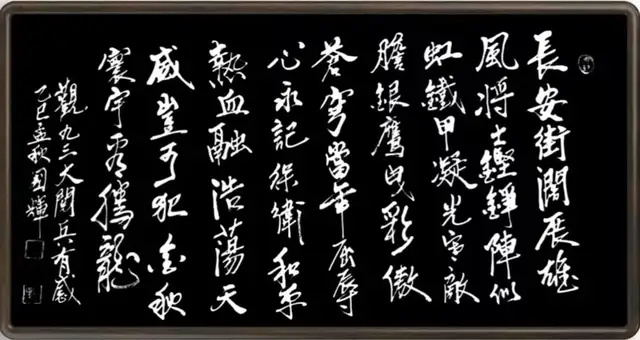 長安街闊展雄
風將士鏗錚陣似
虹鐵甲凝光寒敵
膽銀鷹曳彩傲
蒼穹當年屈辱
心永記保衛和平
熱血融浩蕩天
威豈可犯金秋
寰宇看騰龍
觀九三大閱兵有感
乙巳孟秋国輝